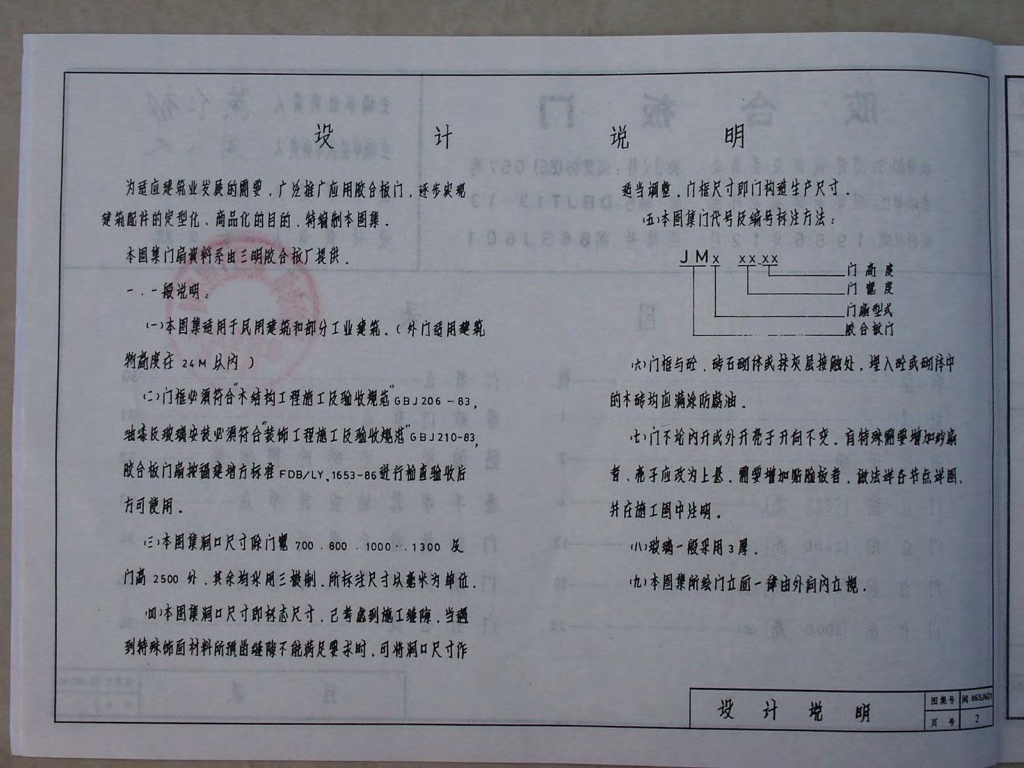 设 计 说 明
为适应建筑业发展的需要，广泛推广应用胶合板门，逐步实现
建筑配件的定型化、商品化的目的，特编制本图集。
本图集门扇资料系由三明胶合板厂提供。
一．一般说明：
(一)本图集适用于民用建筑和部分工业建筑。（外门适用建筑
物高度在 24M 以内）
(二)门框必须符合"木结构工程施工及验收规范"GBJ206－83,
油漆及玻璃安装必须符合"装饰工程施工及验收规范"GBJ210-83,
胶合板门扇按福建地方标准 FDB/LY,1653-86进行检查验收后
方可使用。
(三)本图集洞口尺寸除门宽 700．800．1000．1300 及
门高 2500 外，其余均采用三模制，所标注尺寸以毫米为单位．
(四)本图集洞口尺寸即标志尺寸，已考虑到施工缝隙，当遇
到特殊饰面材料所预留缝隙不能满足要求时，可将洞口尺寸作
适当调整，门框尺寸即门构造生产尺寸．
(五)本图集门代号及编号标注方法：
JMx xx xx
门 高 度
门 宽 度
门扇型式
胶合板门
(六)门框与砼，砖石砌体或抹灰层接触处，埋入砼或砌体中
的木砖均应满涂防腐油．
(七)门不论内开或外开亮子开向不变．有特殊需要增加纱扇
者、亮子应改为上悬．需要增加贴脸板者，做法详各节点详图．
并在施工图中注明．
(八)玻璃一般采用 3 厚．
(九)本图集所绘门立面一律由外向内立视．
设 计 说 明
图集号 闽 86SJ601
页 号 2